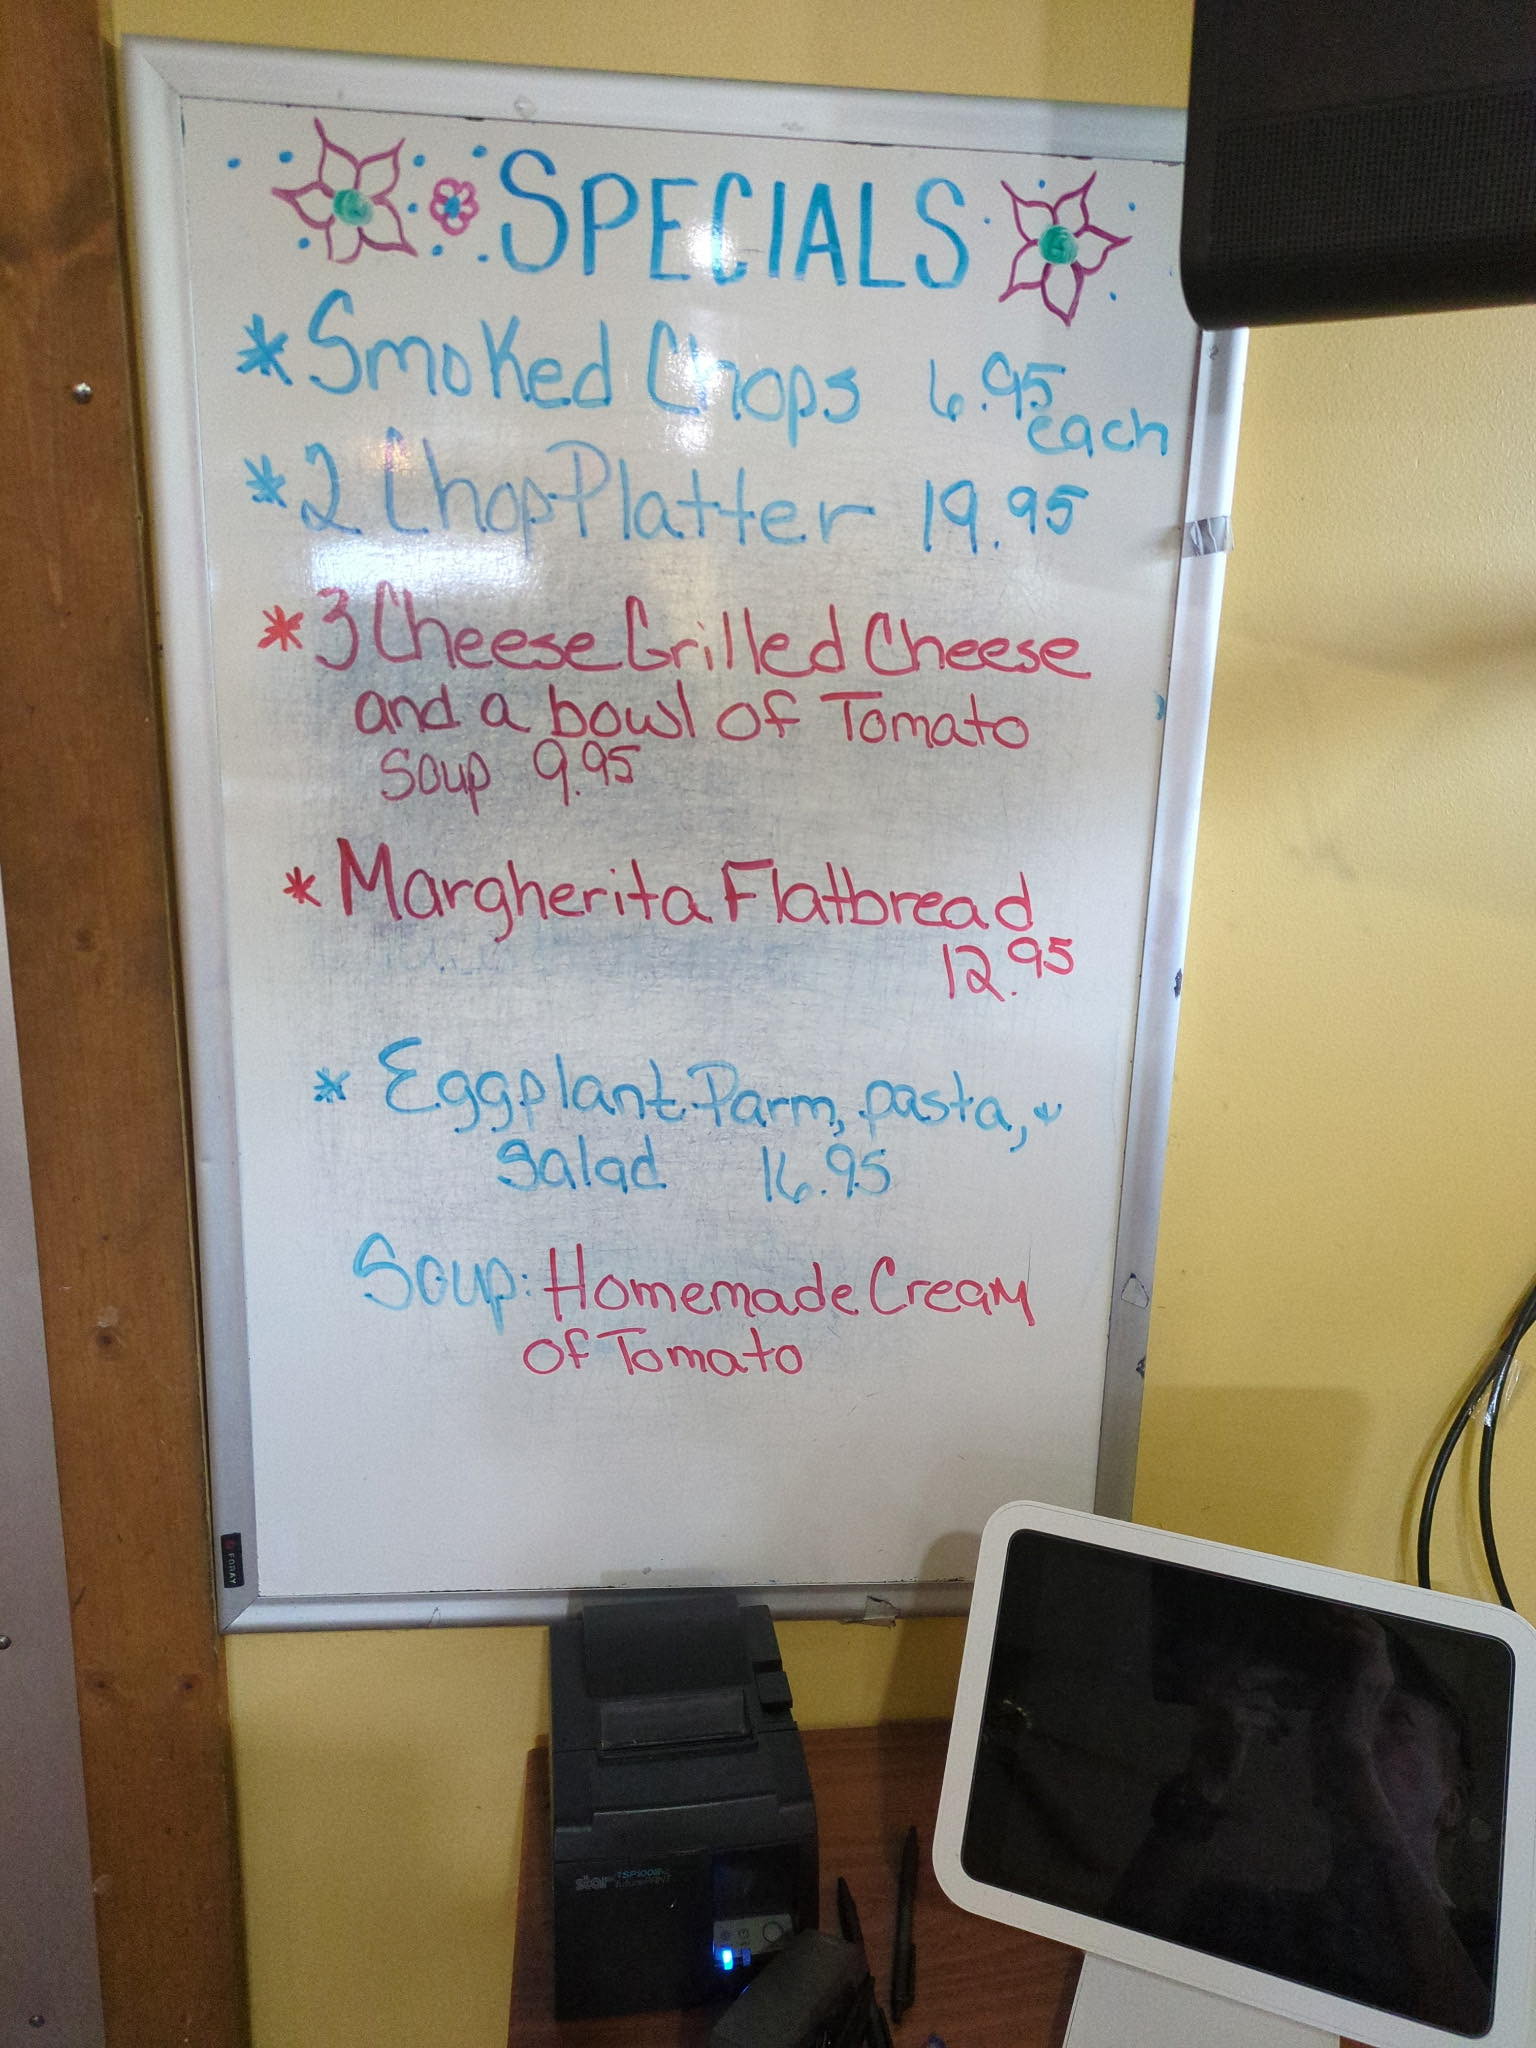 SPECIALS
* Smoked Chops 6.95
each
* 2 Chop Platter 19.95
* 3 Cheese Grilled Cheese
and a bowl of Tomato
Soup 9.95
* Margherita Flatbread
12.95
* Eggplant Parm, pasta, &
Salad 16.95
Soup: Homemade Cream
of Tomato
FORAY
star TSP100III
futurePRNT